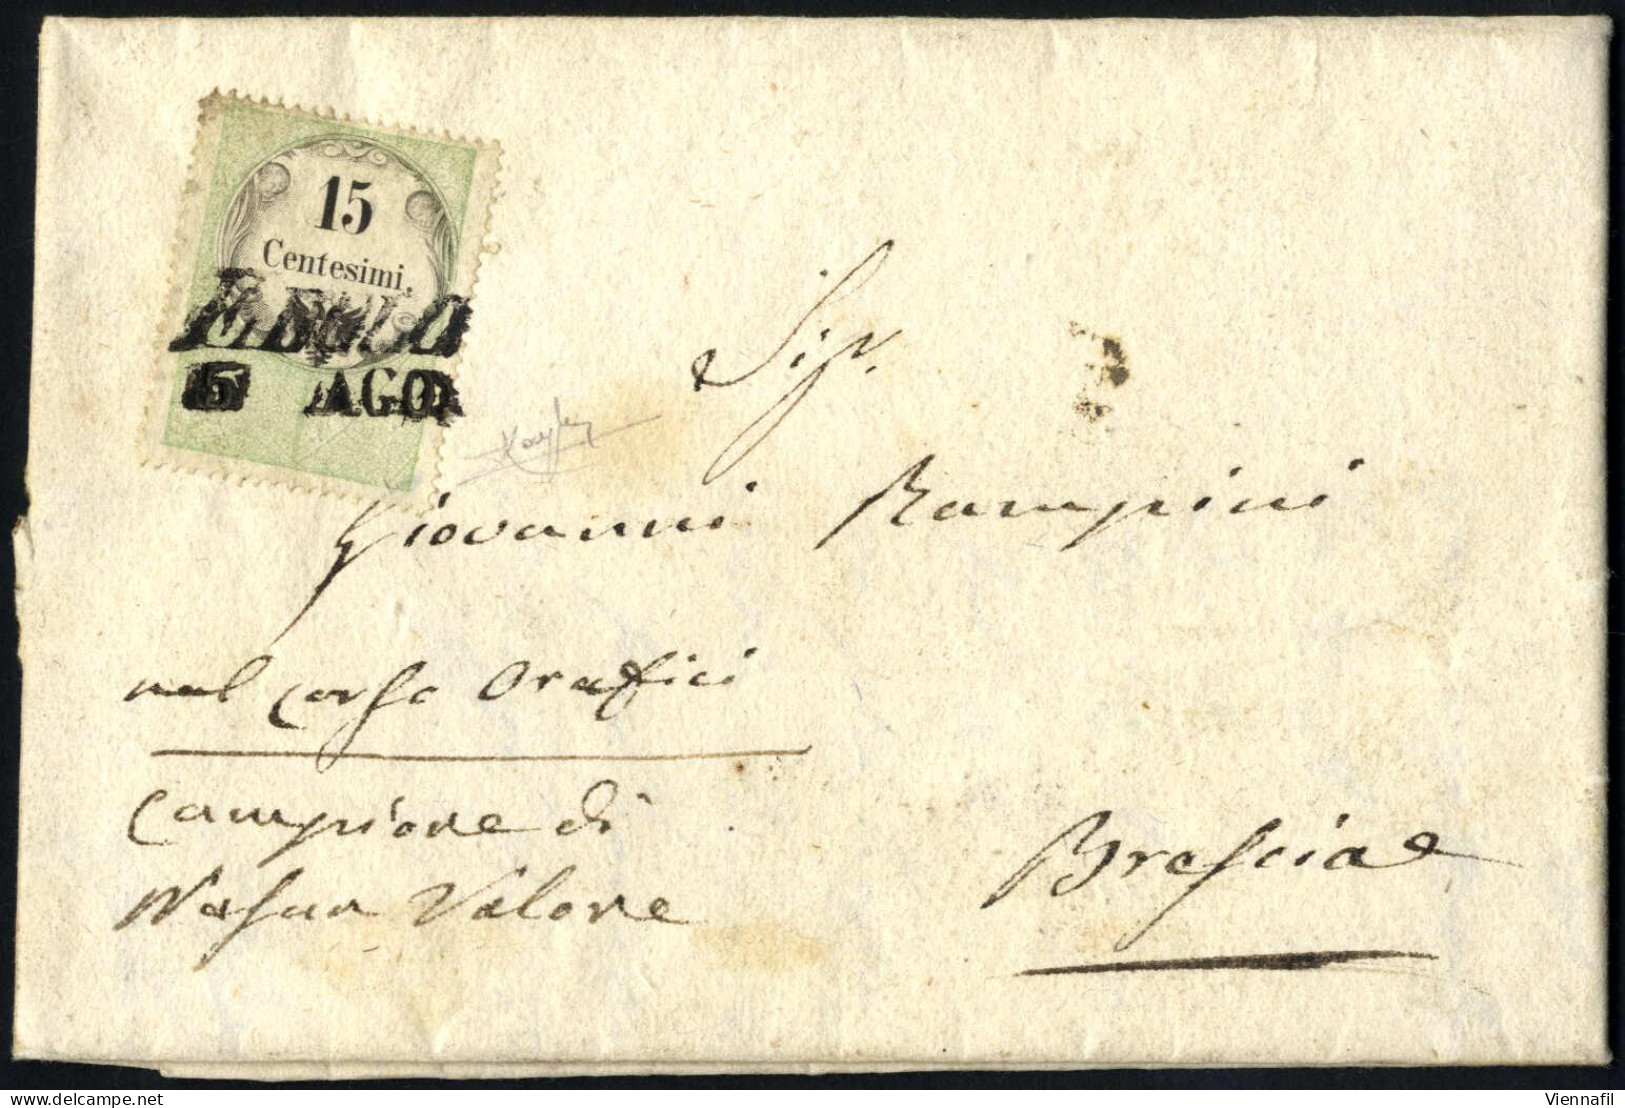 15
Centesimi.
5 AGO
Sigr.
Giovanni Rampini
nel corso Orefici
Campione di
Nesun Valore
Brescia
Viennafil